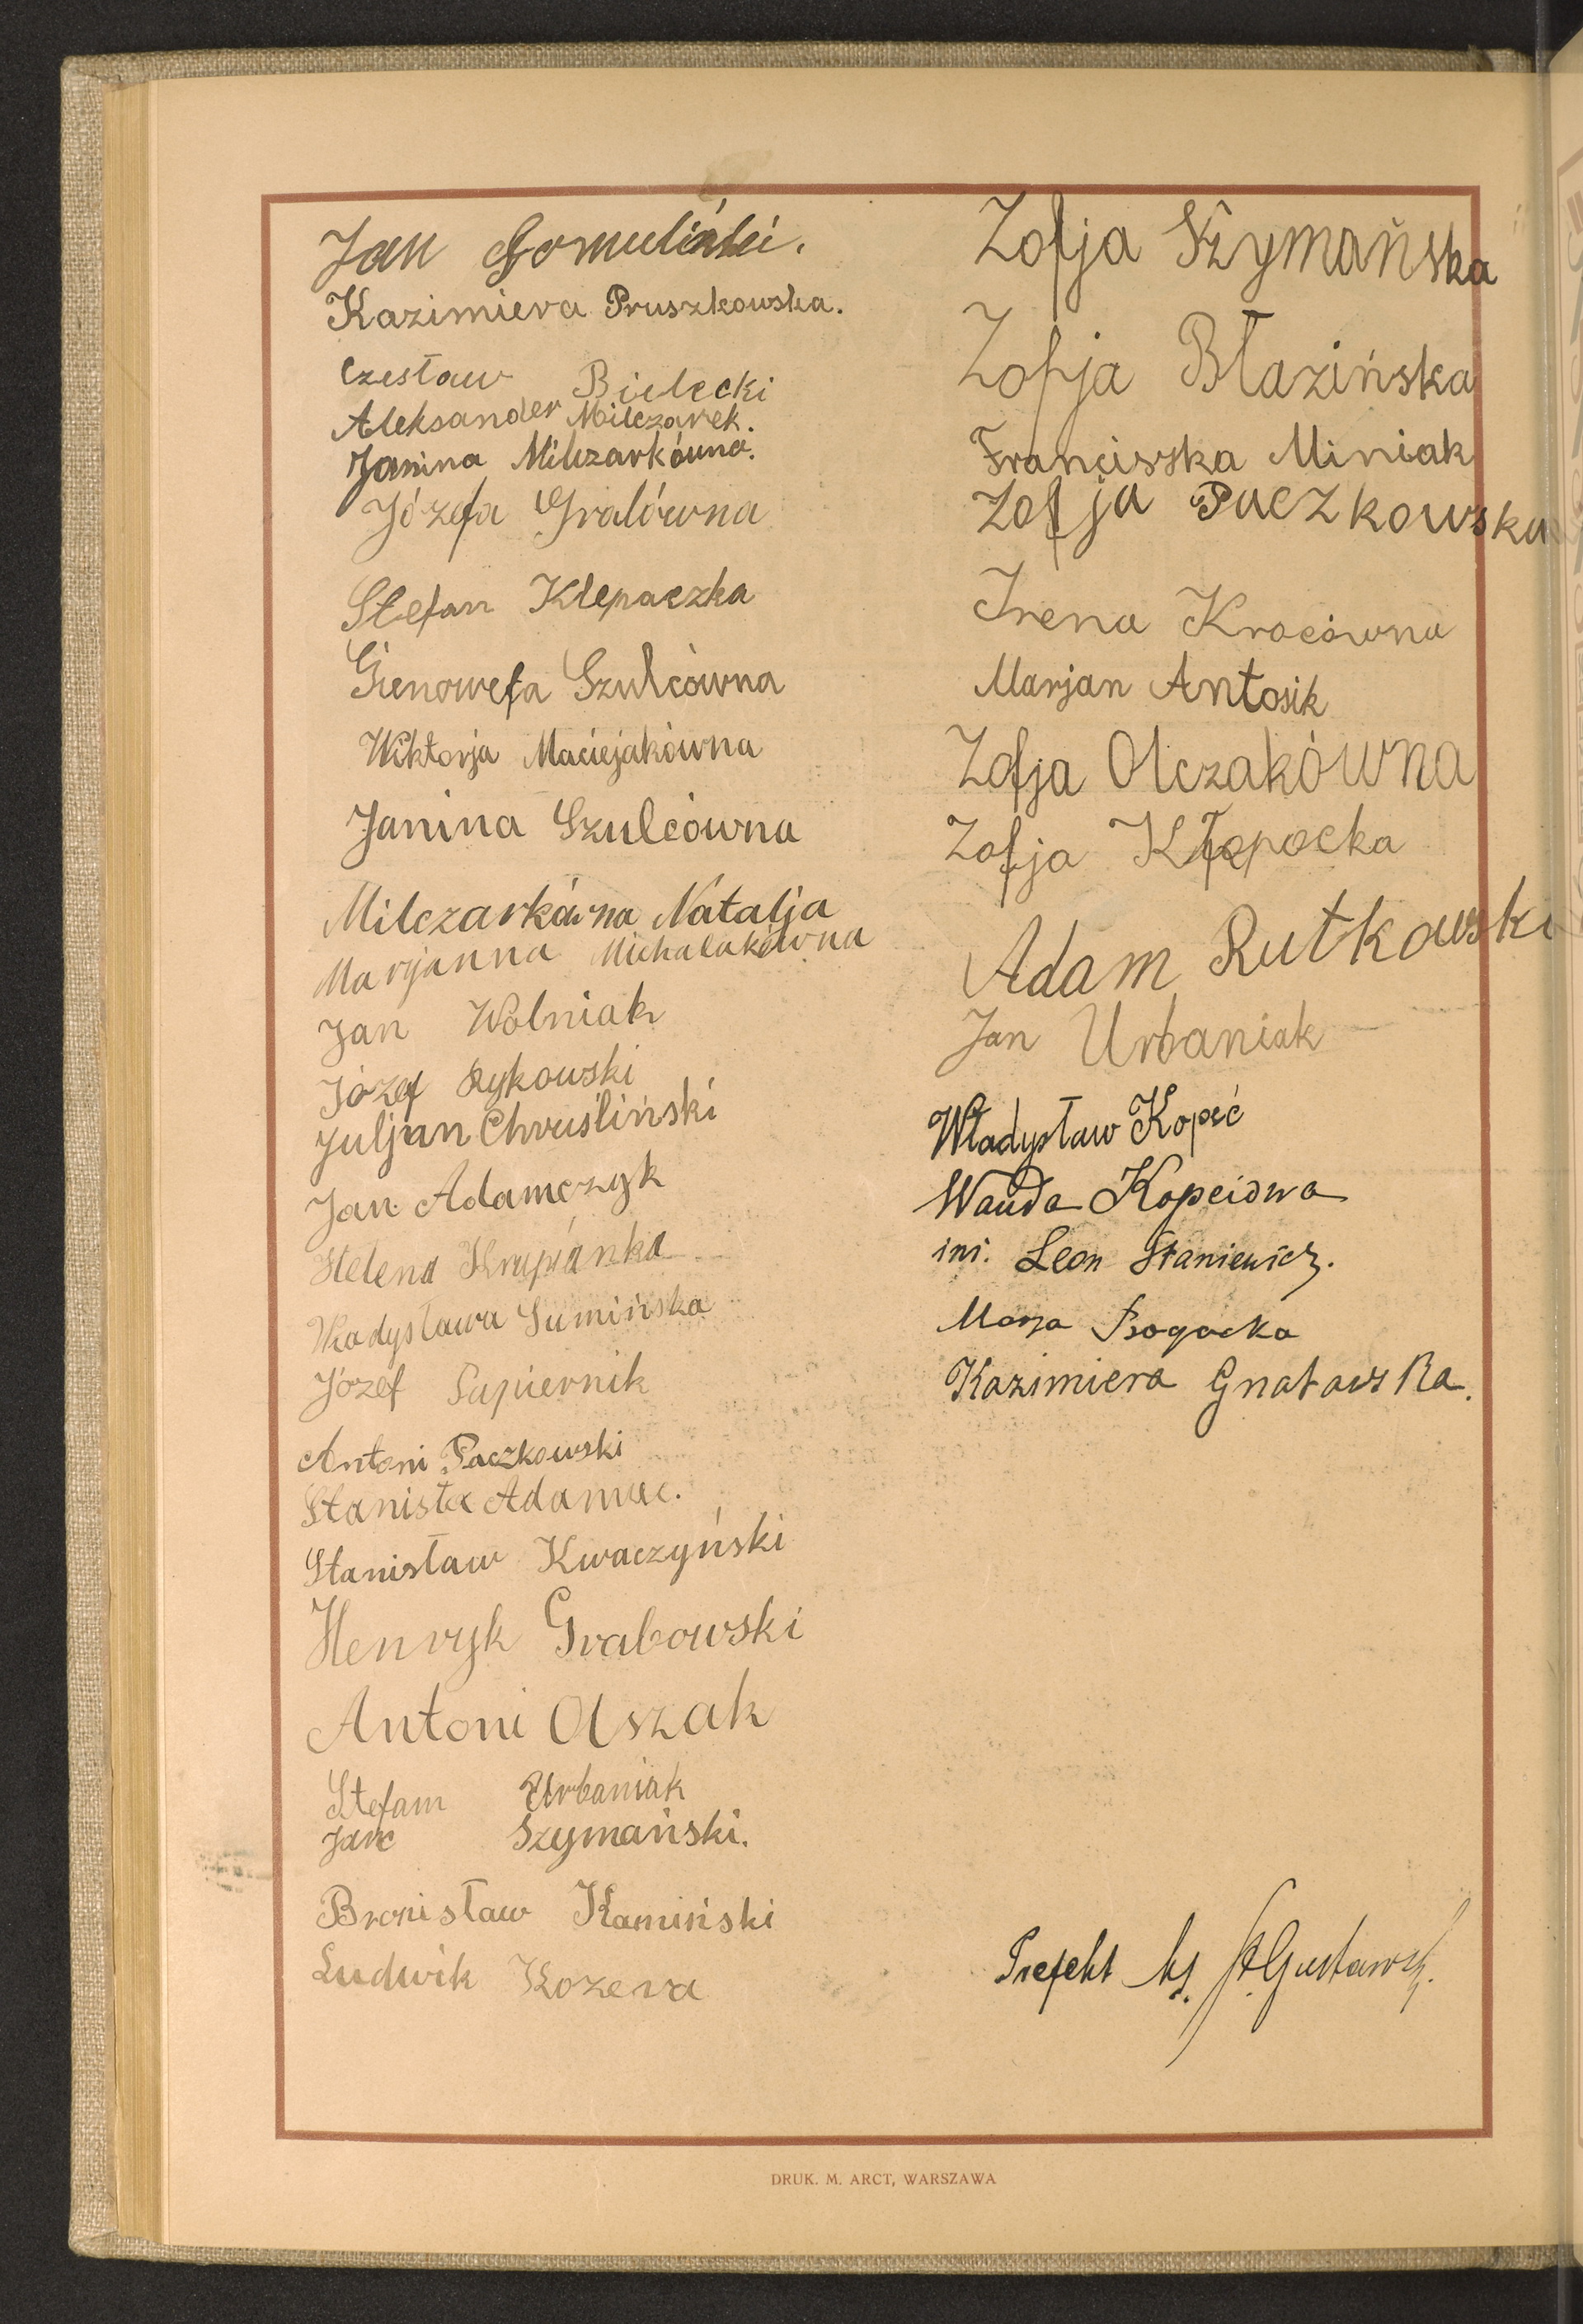 Jan Gomuliński.
Kazimiera Pruszkowska.
Czesław Bielecki
Aleksander Milczarek.
Janina Milczarkówna.
Józefa Gralówna
Stefan Klepaczka
Genowefa Szulcówna
Wiktorja Maciejakówna
Janina Szulcówna
Milczarkówna Natalja
Marjanna Michalakówna
Jan Wolniak
Józef Rykowski
Juljan Chruśliński
Jan Adamczyk
Helena Krupianka
Władysława Sumińska
Józef Papiernik
Antoni Paczkowski
Stanisła Adamiec.
Stanisław Kwaczyński
Henryk Grabowski
Antoni Olszak
Stefam Urbaniak
Jan Szymański.
Bronisław Kamiński
Ludwik Kozera
Zofja Szymańska
Zofja Błazińska
Franciszka Miniak
Zofja Paczkowska
Irena Krocówna
Marjan Antosik
Zofja Olczakówna
Zofja Kłopocka
Adam Rutkowski
Jan Urbaniak
Władysław Kopeć
Wanda Kopciówa
inż. Leon Staniewicz.
Marja Bogacka
Kazimiera Gnatowska.
Prefekt ks. St. Gustawski.
DRUK. M. ARCT, WARSZAWA